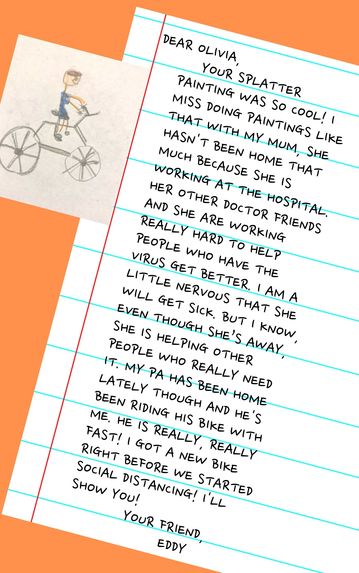 DEAR OLIVIA,
YOUR SPLATTER
PAINTING WAS SO COOL! I
MISS DOING PAINTINGS LIKE
THAT WITH MY MUM, SHE
HASN'T BEEN HOME THAT
MUCH BECAUSE SHE IS
WORKING AT THE HOSPITAL.
HER OTHER DOCTOR FRIENDS
AND SHE ARE WORKING
REALLY HARD TO HELP
PEOPLE WHO HAVE THE
VIRUS GET BETTER. I AM A
LITTLE NERVOUS THAT SHE
WILL GET SICK. BUT I KNOW,
EVEN THOUGH SHE'S AWAY,
SHE IS HELPING OTHER
PEOPLE WHO REALLY NEED
IT. MY PA HAS BEEN HOME
LATELY THOUGH AND HE'S
BEEN RIDING HIS BIKE WITH
ME. HE IS REALLY, REALLY
FAST! I GOT A NEW BIKE
RIGHT BEFORE WE STARTED
SOCIAL DISTANCING! I'LL
SHOW YOU!
YOUR FRIEND,
EDDY